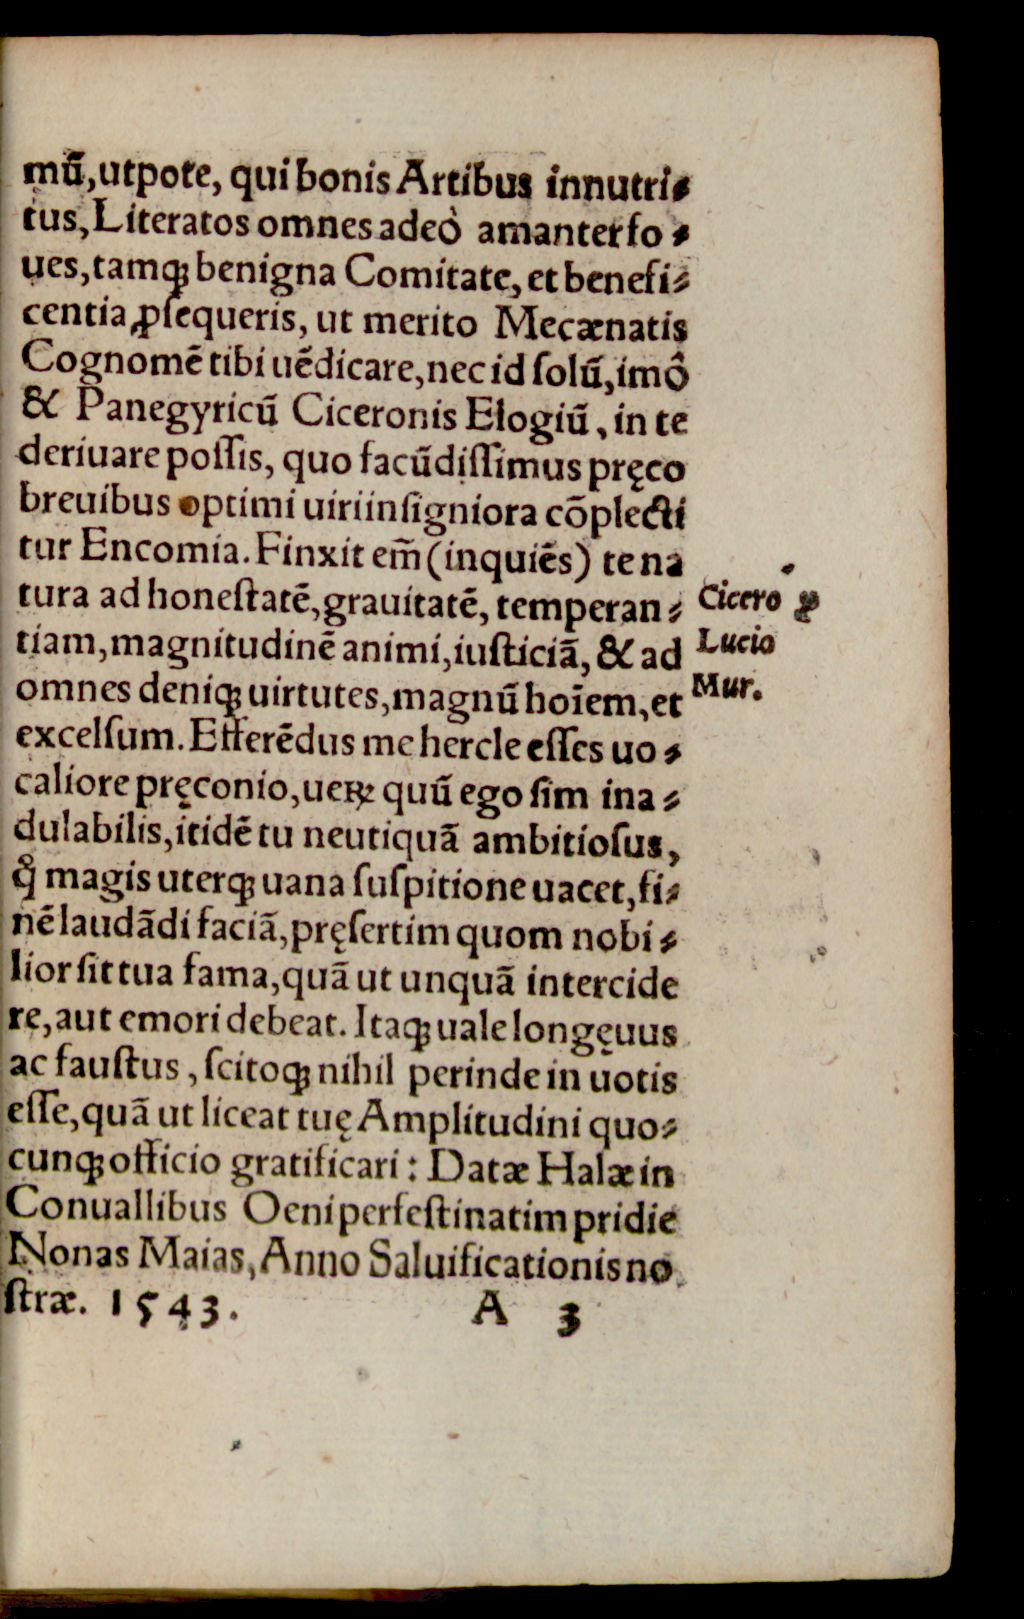 mũ,utpote, qui bonis Artibus innutri⸗
tus, Literatos omnes adeò amanter fo⸗
ues, tamqꝫ benigna Comitate, et benefi⸗
centia ꝓſequeris, ut merito Mecænatis
Cognomẽ tibi uẽdicare, nec id ſolũ, imô
& Panegyricũ Ciceronis Elogiũ, in te
deriuare poſſis, quo facũdiſſimus pręco
breuibus optimi uiri inſigniora cõplecti
tur Encomia. Finxit em̃ (inquiẽs) te na
tura ad honeſtatẽ, grauitatẽ, temperan⸗
tiam, magnitudinẽ animi, iuſticiã, & ad
omnes deniqꝫ uirtutes, magnũ hoĩem, et
excelſum. Efferẽdus me hercle eſſes uo⸗
caliore pręconio, ueꝝ quũ ego ſim ina⸗
dulabilis, itidẽ tu neutiquã ambitioſus,
qͦ magis uterqꝫ uana ſuſpitione uacet, fi⸗
nẽ laudãdi faciã, pręſertim quom nobi⸗
lior ſit tua fama, quã ut unquã intercide
re, aut emori debeat. Itaqꝫ uale longęuus
ac fauſtus, ſcitoqꝫ nihil perinde in uotis
eſſe, quã ut liceat tuę Amplitudini quo⸗
cunqꝫ officio gratificari: Datæ Halæ in
Conuallibus Oeni perfeſtinatim pridie
Nonas Maias, Anno Saluificationis no
ſtræ. 1543. A 3
Cicero ꝓ
Lucio
Mur.